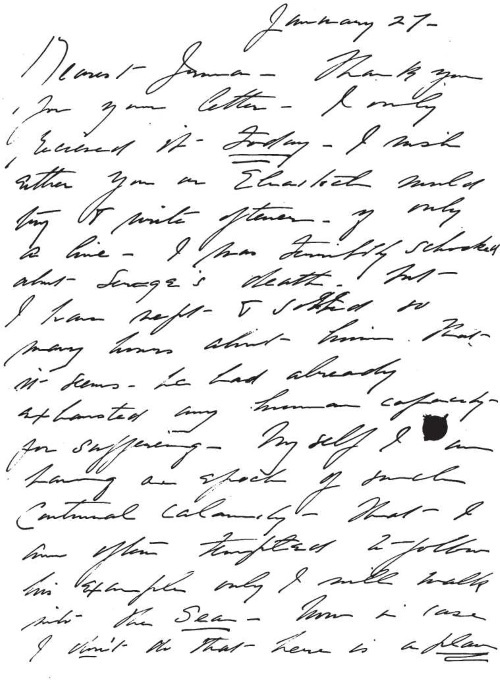 January 27-
Dearest Irma - Thank you
for your letter - I only
received it today - I wish
either you or Elisabeth would
try & write oftener - if only
a line - I was terribly schocked
about Serge's death. but
I have wept & sobbed so
many hours about him that
it seems - he had already
exhausted any human capacity-
for suffering - Myself I am
having an epoch of such
Continual Calamity - that I
am often tempted to follow
his example only I will walk
into the Sea - Now in case
I don't do that here is a plan